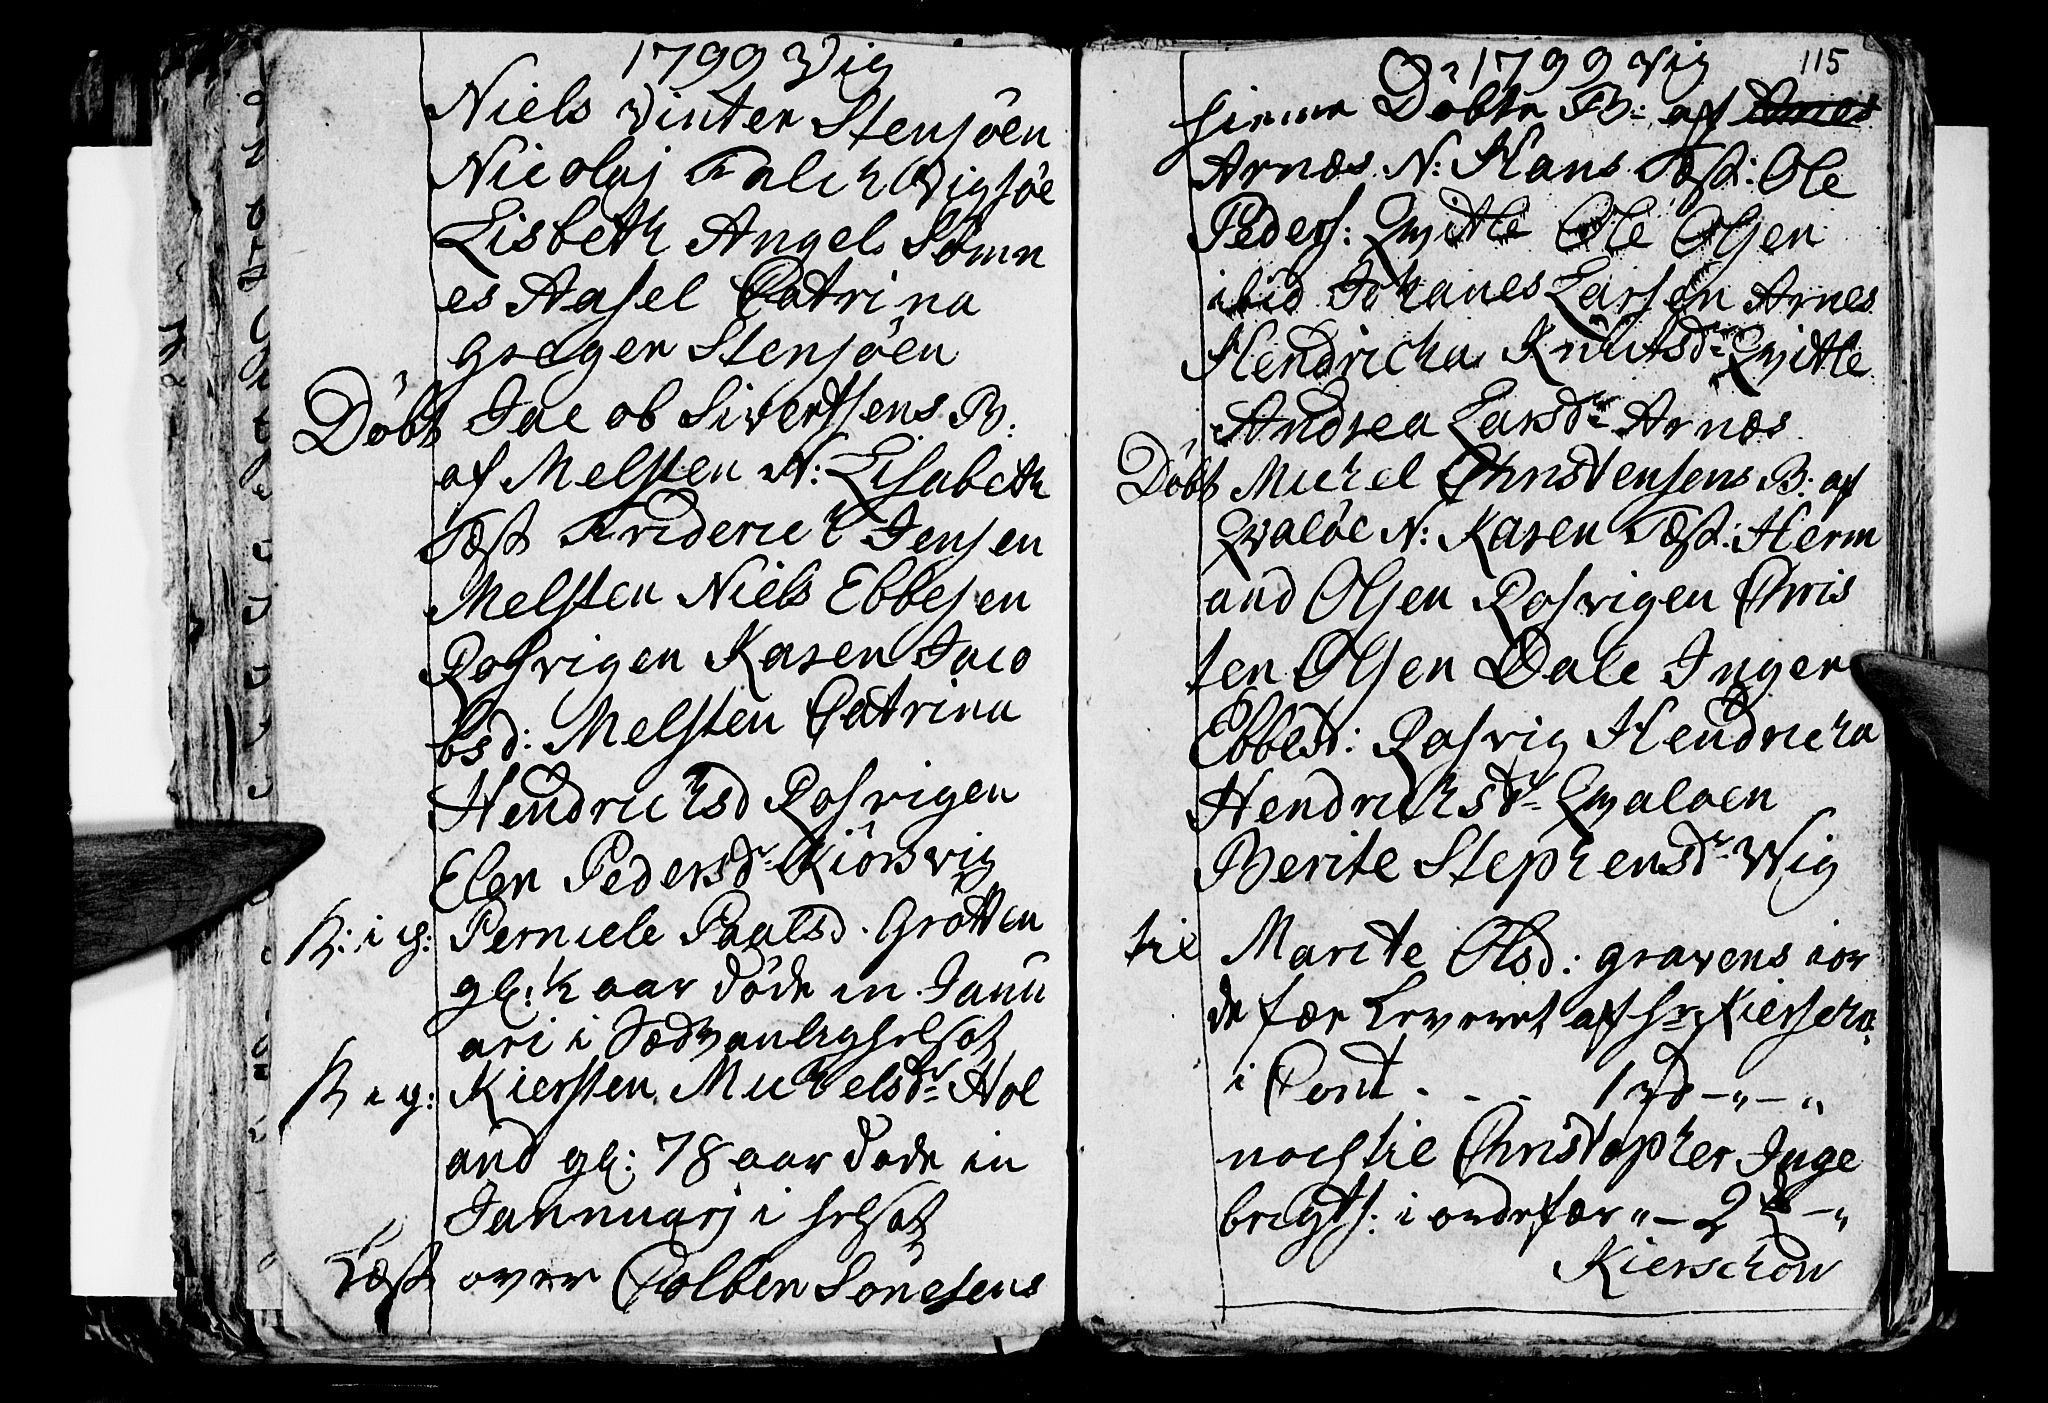 1799 Vig
Niels Vinter Stensöen
Nicolaj Falch Vigsöe
Lisbeth Angel Sömn
es Aasel Catrina
greger Stensöen
Döbt Jac ob Sivertsens B:
af Melsten N: Lisabeth
Test Friderich Jensen
Melsten Niels Ebbesen
Rosvigen Karen Jaco
bsd: Melsten Catrina
Hendrichsd Rosvigen
Elen Pedersdr Kiörsvig
B: i g: Perniele Paalsd. Grötten
gl: ½ aar döde in Janu
ari i Sædvanlighelsot
B i g: Kiersten Michelsdr Hol
and gl: 78 aar döde in
Jannuarj i helsot
Test over Colben Sönesens
1799 Vig 115
hieme Döbte B: af Arnes
Arnæs N: Hans Test: Ole
Peders: Qvitle Ole Olsen
ibid Johanes Larsen Arnes
Hendricha Knutsdr Qvitle
Andrea Larsdr Arnæs
Döbt Michel Christensens B: af
Qvalöe N: Karen Test: Herm
and Olsen Rosvigen Chris
ten Olsen Dale Inger
Ebbesd: Rosvig Hendricha
Hendrichsdr Qvaloen
Berite Stephensdr Wig
til Marite Olsd: gravens ior
de fær Leveret af hr Kierscho
i Cont - - - 1 rd - " - "
noch til Christopher Inge
brigts: i ordefær " - 2 - "
Kierschow